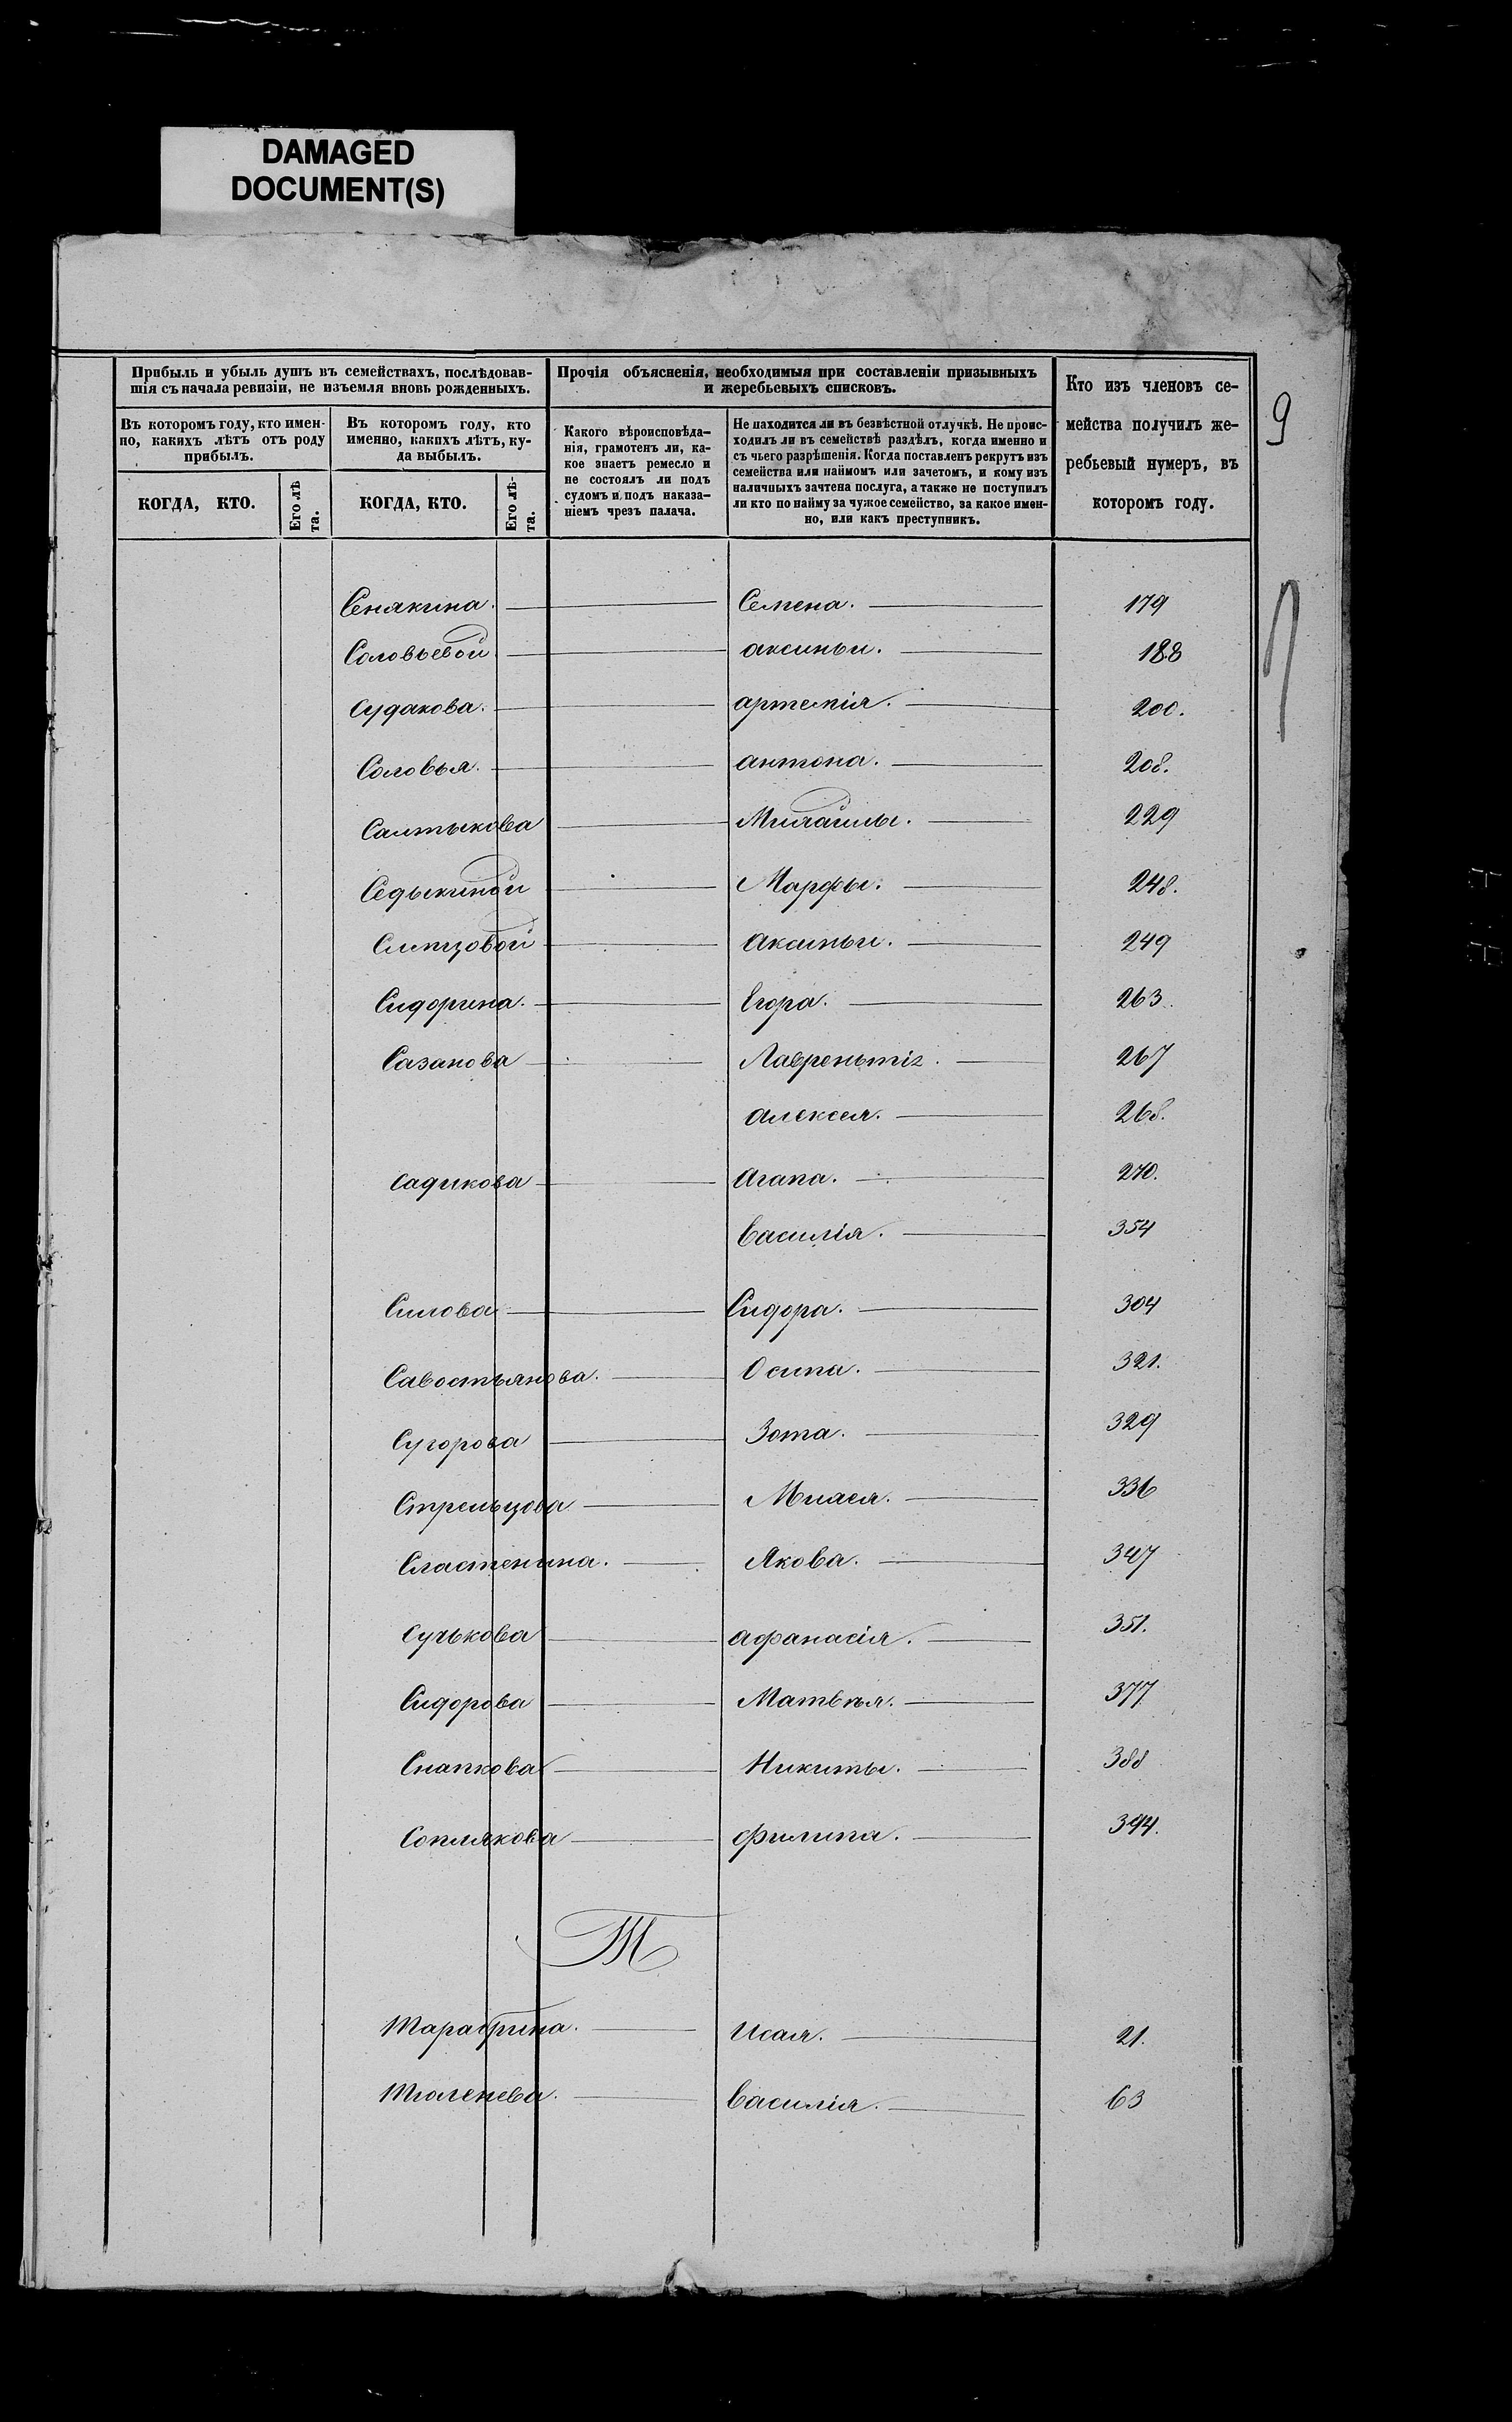 DAMAGED
DOCUMENT(S)
Прибыль и убыль душъ въ семействахъ, послѣдовав-
шія съ начала ревизіи, не изъемля вновь рожденныхъ.
Прочія объясненія, необходимыя при составленіи призывныхъ
и жеребьевыхъ списковъ.
Кто изъ членовъ се-
мейства получилъ же-
ребьевый нумеръ, въ
которомъ году.
9
Въ которомъ году, кто имен-
но, какихъ лѣтъ отъ роду
прибылъ.
Въ которомъ году, кто
именно, какихъ лѣтъ, ку-
да выбылъ.
Какого вѣроисповѣда-
нія, грамотенъ ли, ка-
кое знаетъ ремесло и
не состоялъ ли подъ
судомъ и подъ наказа-
ніемъ чрезъ палача.
Не находится ли въ безвѣстной отлучкѣ. Не проис-
ходилъ ли въ семействѣ раздѣлъ, когда именно и
съ чьего разрѣшенія. Когда поставленъ рекрутъ изъ
семейства или наймомъ или зачетомъ, и кому изъ
наличныхъ зачтена послуга, а также не поступилъ
ли кто по найму за чужое семейство, за какое имен-
но, или какъ преступникъ.
КОГДА, КТО.
Его лѣ
та.
КОГДА, КТО.
Его лѣ-
та.
Сенякина. Семена. 179
Соловьевой аксиньи. 188
Судакова. артемія. 200.
Соловья. антона. 208.
Салтыкова Михайлы. 229
Седыкиной Марфы. 248.
Слепцовой Аксиньи. 249
Сидорина. Егора. 263.
Сазанова Лаврентія. 267
алексея. 268.
Садикова Агапа. 270.
Василія. 354
Силова Сидора. 304
Савостьянова. Осипа. 321.
Сугорова Зота. 329
Стрельцова Михея. 336
Сластенина. Якова. 347
Сучькова афанасія. 351.
Сидорова Матвѣя. 377
Снапкова Никиты. 388
Соплякова филипа. 394.
Т
Исая. 21.
Тюленева. Василія. 63